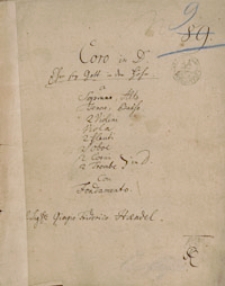 9
89.
Coro in D
Ehre sey Gott in der Höhe
a
Soprano, Alto
Tenore, Basso
2 Violini
Viola
2 Flauti
2 Oboe
2 Corni
2 Trombe in D.
Con
Fondamento.
Giorgio Federico Haendel.